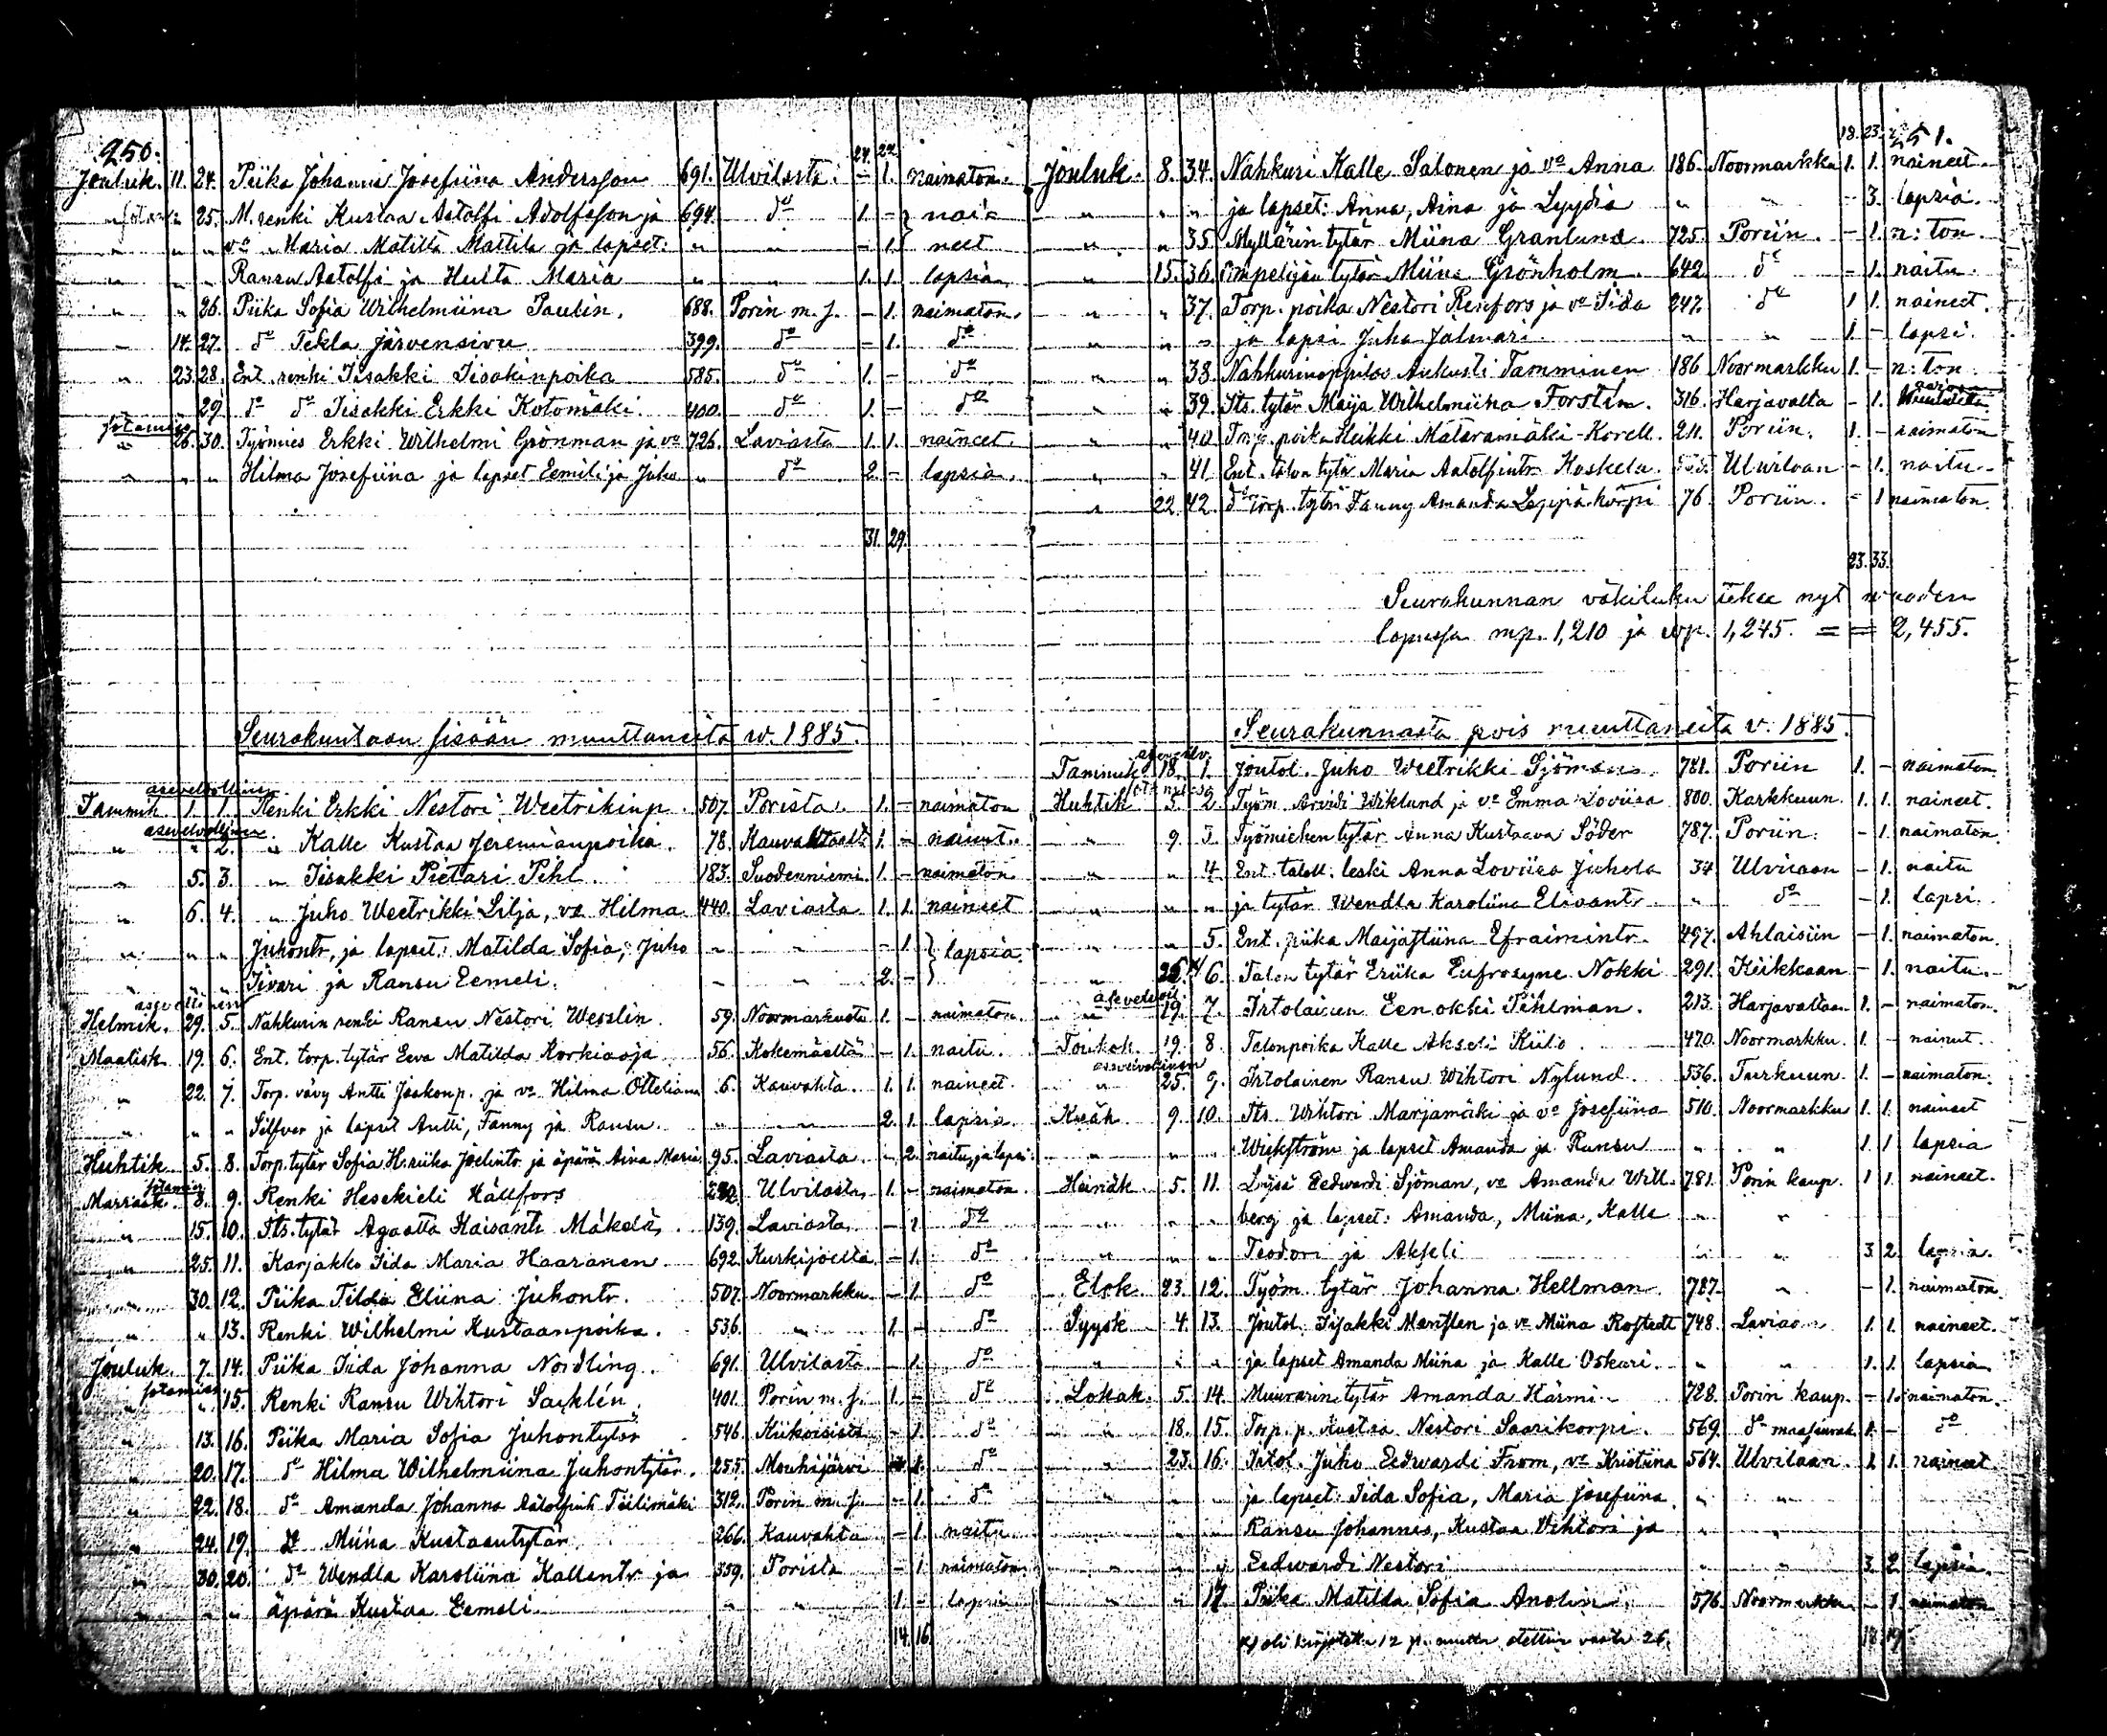 250.
24. 22.
Jouluk. 11. 24. Piika Johanna Josefiina Andersson 691. Ulvilasta. - 1. naimaton.
" 25. M. renki Kustaa Aatolfi Adolfsson ja 694. do 1. - nai=
" " " vo Maria Matilta Mattila ja lapset: " " - 1. neet
" " " Ransu Aatolfi ja Hulta Maria " " 1. 1. lapsia
" " 26. Piika Sofia Wilhelmiina Paulin. 688. Porin m. s. - 1. naimaton.
" 14. 27. do Tekla Järvensivu 399. do - 1. do
" 23. 28. Ent. renki Iisakki Iisakinpoika 585. do 1. - do
29. do do Iisakki Erkki Kotomäki. 400. do 1. - do
" 26. 30. Työmies Erkki Wilhelmi Grönman ja vo 726. Laviasta 1. 1. naineet.
" " " Hilma Josefiina ja lapset Eemili ja Juho " do 2. - lapsia.
31. 29.
Seurakuntaan sisään muuttaneita w. 1885.
asevelvollinen
Tammik. 1. 1. Renki Erkki Nestori Weetrikinp. 507. Porista. 1. - naimaton
asevelvollinen.
" " 2. " Kalle Kustaa Jeremianpoika. 78. 1. - nainut.
" 5. 3. " Iisakki Pietari Pihl. 183. Suodenniemi 1. - naimaton
" 6. 4. " Juho Weetrikki Lilja, vo Hilma 440. Laviasta 1. 1. naineet
" " " Juhontr. ja lapset: Matilda Sofia, Juho " " - 1. lapsia.
" " " Iivari ja Ransu Eemeli. " " 2. -
Helmik. 29. 5. Nahkurin renki Ransu Nestori Wesslin. 59. Noormarkusta 1. - naimaton.
Maalisk. 19. 6. Ent. torp. tytär Eeva Matilda Korkiaoja 56. Kokemäeltä - 1. naitu.
" 22. 7. Torp. vävy Antti Jaakonp. ja vo Hilma Otteliana 6. Kauvatsa. 1. 1. naineet.
" " " Silfver ja lapset Antti, Fanny ja Ransu. " " 2. 1. lapsia.
Huhtik. 5. 8. Torp. tytär Sofia H.riika Joelintr. ja äpärä Aina Maria 95. Laviasta - 2. naitu ja lapsi
Marrask. 8. 9. Renki Hesekieli Källfors Ulvilasta 1. - naimaton.
" 15. 10. Its. tytär Agaatta Kaisantr. Mäkelä. 139. Laviasta - 1. do
" 25. 11. Karjakko Iida Maria Haaranen 692. Kurkijoelta - 1. do
" 30. 12. Piika Tilda Eliina Juhontr. 507. Noormarkku - 1. do
" " 13. Renki Wilhelmi Kustaanpoika. 536. " 1. - do
Jouluk. 7. 14. Piika Iida Johanna Nordling. 691. Ulvilasta - 1. do
" " 15. Renki Ransu Wihtori Sacklén. 401. Porin m. s. 1. - do
" 13. 16. Piika Maria Sofia Juhontytär 546. Kiikoisista - 1. do
" 20. 17. do Hilma Wilhelmiina Juhontytär. 255. Mouhijärvi 1. do
" 22. 18. do Amanda Johanna Aatolfintr. 312. Porin m. s. - 1. do
" 24. 19. do Miina Kustaantytär 266. Kauvatsa - 1. naitu
" 30. 20. do Wendla Karoliina Kallentr. ja 359. Porista - 1. naimaton
" " " äpärä Kustaa Eemeli " " 1. - lapsi
14. 16.
251.
18. 23.
Jouluk. 8. 34. Nahkuri Kalle Salonen ja vo Anna 186. Noormarkku 1. 1. naineet.
" " " ja lapset: Anna, Aina ja Lyydia " " - 3. lapsia.
" " 35. Myllärin tytär Miina Granlund. 725. Poriin. - 1. n: ton.
" 15. 36. Ompelijan tytär Miina Grönholm. 642. do - 1. naitu.
" " 37. Torp. poika Nestori Renfors ja vo Iida 247. do 1 1. naineet.
" " " ja lapsi Juho Jalmari. " " 1. - lapsi.
" " 38. Nahkurinoppilas Aukusti Tamminen 186 Noormarkku 1. - n: ton.
" " 39. Its. tytär Maija Wilhelmiina Forstén. 316. Harjavalta - 1.
" " 40. poika Heikki Mataramäki-Korell. 211. Poriin. 1. - naimaton
" " 41 Ent. talon tytär Maria Aatolfintr. Koskela. Ulvilaan - 1. naitu.
" 22. 42. do Torp. tytär Fanny Amanda Leppäkorpi 76. Poriin. - 1 naimaton.
23. 33.
Seurakunnan väkiluku tekee nyt wuoden
lopussa mp. 1,210 ja wp. 1,245. = = 2,455.
Seurakunnasta pois muuttaneita v. 1885.
Tammik. 18. 1. Juho Weetrikki Sjöman. 781. Poriin 1. - naimaton.
Huhtik. 3. 2. Työm. Arvidi Wiklund ja vo Emma Loviisa 800. Karkkuun. 1. 1. naineet.
" 9. 3. Työmiehen tytär Anna Kustaava Söder 787. Poriin. - 1. naimaton.
" " 4. Ent. taloll. leski Anna Loviisa Juhola 34 Ulvilaan - 1. naitu
" " " ja tytär Wendla Karoliina Elivantr. " do - 1. lapsi.
" " 5. Ent. piika Maijastiina Efraimintr. 497. Ahlaisiin - 1. naimaton.
" 26. x) 6. Talon tytär Eriika Eufrosyne Nokki 291. Kiikkaan - 1. naitu.
" 19. 7. Irtolainen Eenokki Pihlman. 213. Harjavaltaan 1. - naimaton.
Toukok. 19. 8. Talonpoika Kalle Akseli Kiilo. 470. Noormarkku. 1. - nainut.
asevelvollinen
" 25. 9. Irtolainen Ransu Wihtori Nylund. 536. Turkuun. 1. - naimaton.
Kesäk. 9. 10. Its. Wihtori Marjamäki ja vo Josefiina 510. Noormarkku 1. 1. naineet
" " " Wickström ja lapset Amanda ja Ransu " " 1 1 lapsia
Heinäk. 5. 11. Eedvardi Sjöman, vo Amanda Will- 781. Porin kaup. 1 1. naineet.
" " " berg ja lapset: Amanda, Miina, Kalle " "
" " " Teodori ja Akseli " " 3. 2. lapsia.
Elok. 23. 12. Työm. tytär Johanna Hellman 787. " - 1. naimaton.
Syysk. 4. 13. Iisakki ja vo Miina Rostedt 748. 1. 1. naineet.
" " " ja lapset Amanda Miina ja Kalle Oskari. " " 1. 1. lapsia
Lokak. 5. 14. Muurarin tytär Amanda Härmi. 728. Porin kaup. - 1. naimaton.
" 18. 15. Torp. p. Kustaa Nestori Saarikorpi. 569. do maaseurak. 1. - do
" 23. 16. Juho Eedvardi From, vo Kristiina 564. Ulvilaan. 1. 1. naineet.
" " " ja lapset: Iida Sofia, Maria Josefiina " "
Ransu Johannes, Kustaa Wihtori ja "
" " " Eedvardi Nestori " " 3. 2. lapsia.
" " 17. Piika Matilda Sofia Anolin. 576. Noormarkku - 1. naimaton
x) oli kirjotettu 12 p. mutta otettiin vasta 26.
18. 19.